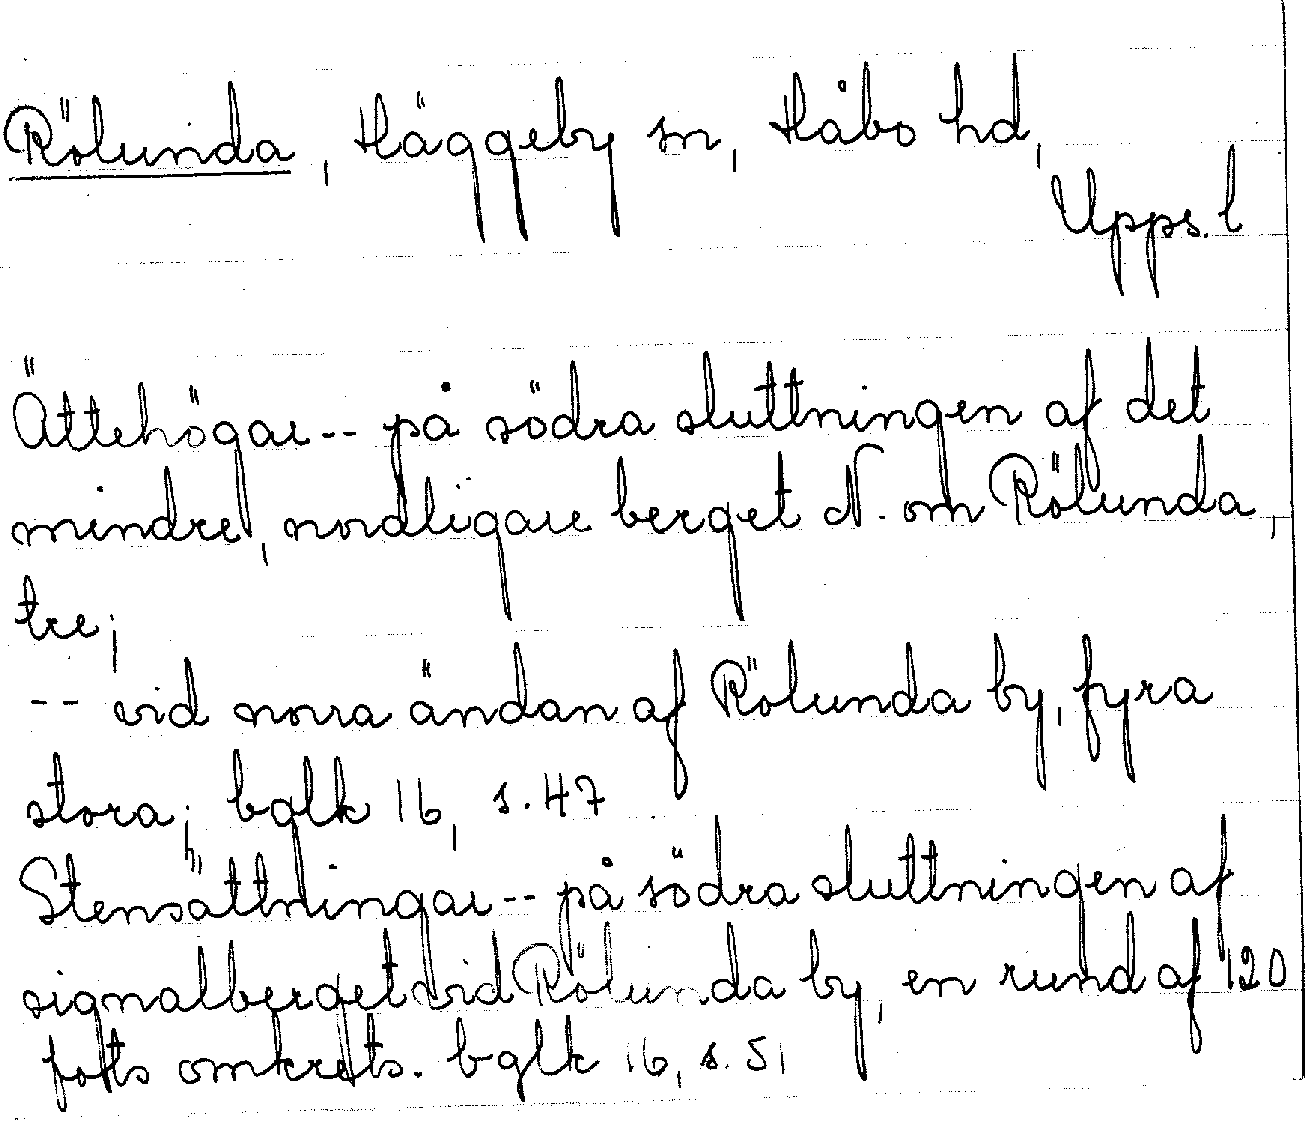 Rölunda, Häggeby sn, Håbo hd,
Upps. l
Ättehögar -- på södra sluttningen af det
mindre, nordligare berget N. om Rölunda,
tre;
-- vid norra ändan af Rölunda by, fyra
stora; bglk 16, s. 47
Stensättningar -- på södra sluttningen af
signalberget vid Rölunda by, en rund af 120
fots omkrets. bglk 16, s. 51